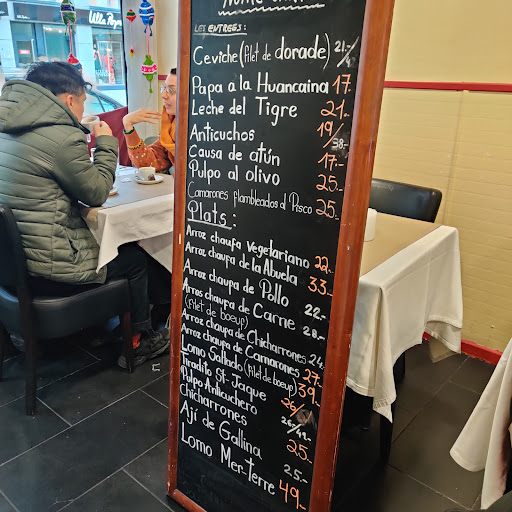 Les Entrees:
Ceviche (filet de dorade) 21.-/
Papa a la Huancaina 17.
Leche del Tigre 21.-
Anticuchos 19/38.-
Causa de atún 17.-
Pulpo al olivo 25.-
Camarones flambleados al Pisco 25.-
Plats:
Arroz chaufa vegetariano 22.-
Arroz chaufa de la Abuela 33.-
Arroz chaufa de Pollo 22.-
Arros chaufa de Carne 28.-
(filet de boeuf)
Arroz chaufa de Chicharrones 24.
Arroz chaufa de Camarones 27.-
Lomo Saltado (filet de boeuf) 39.-
Tiradito St-Jaque 26/
Pulpo Anticuchero 26/49.-
Chicharrones 25.-
Ají de Gallina 25.-
Lomo Mer-terre 49.-